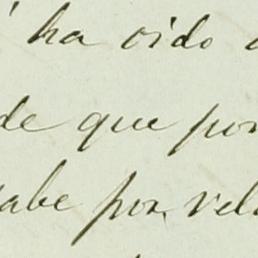 ha oido
de que por
sabe por rela